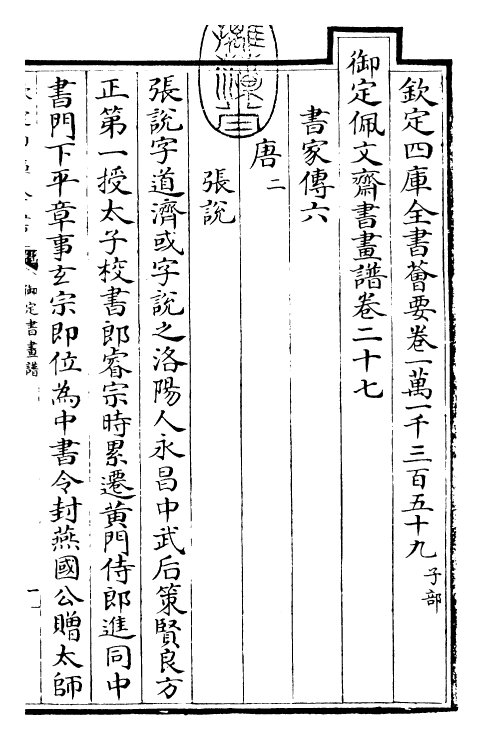 欽定四庫全書薈要卷一萬一千三百五十九 子部
御定佩文齋書畫譜卷二十七
書家傳六
唐二
張說
張說字道濟或字說之洛陽人永昌中武后策賢良方
正第一授太子校書郎睿宗時累遷黃門侍郎進同中
書門下平章事玄宗即位為中書令封燕國公贈太師
御定書畫譜
一